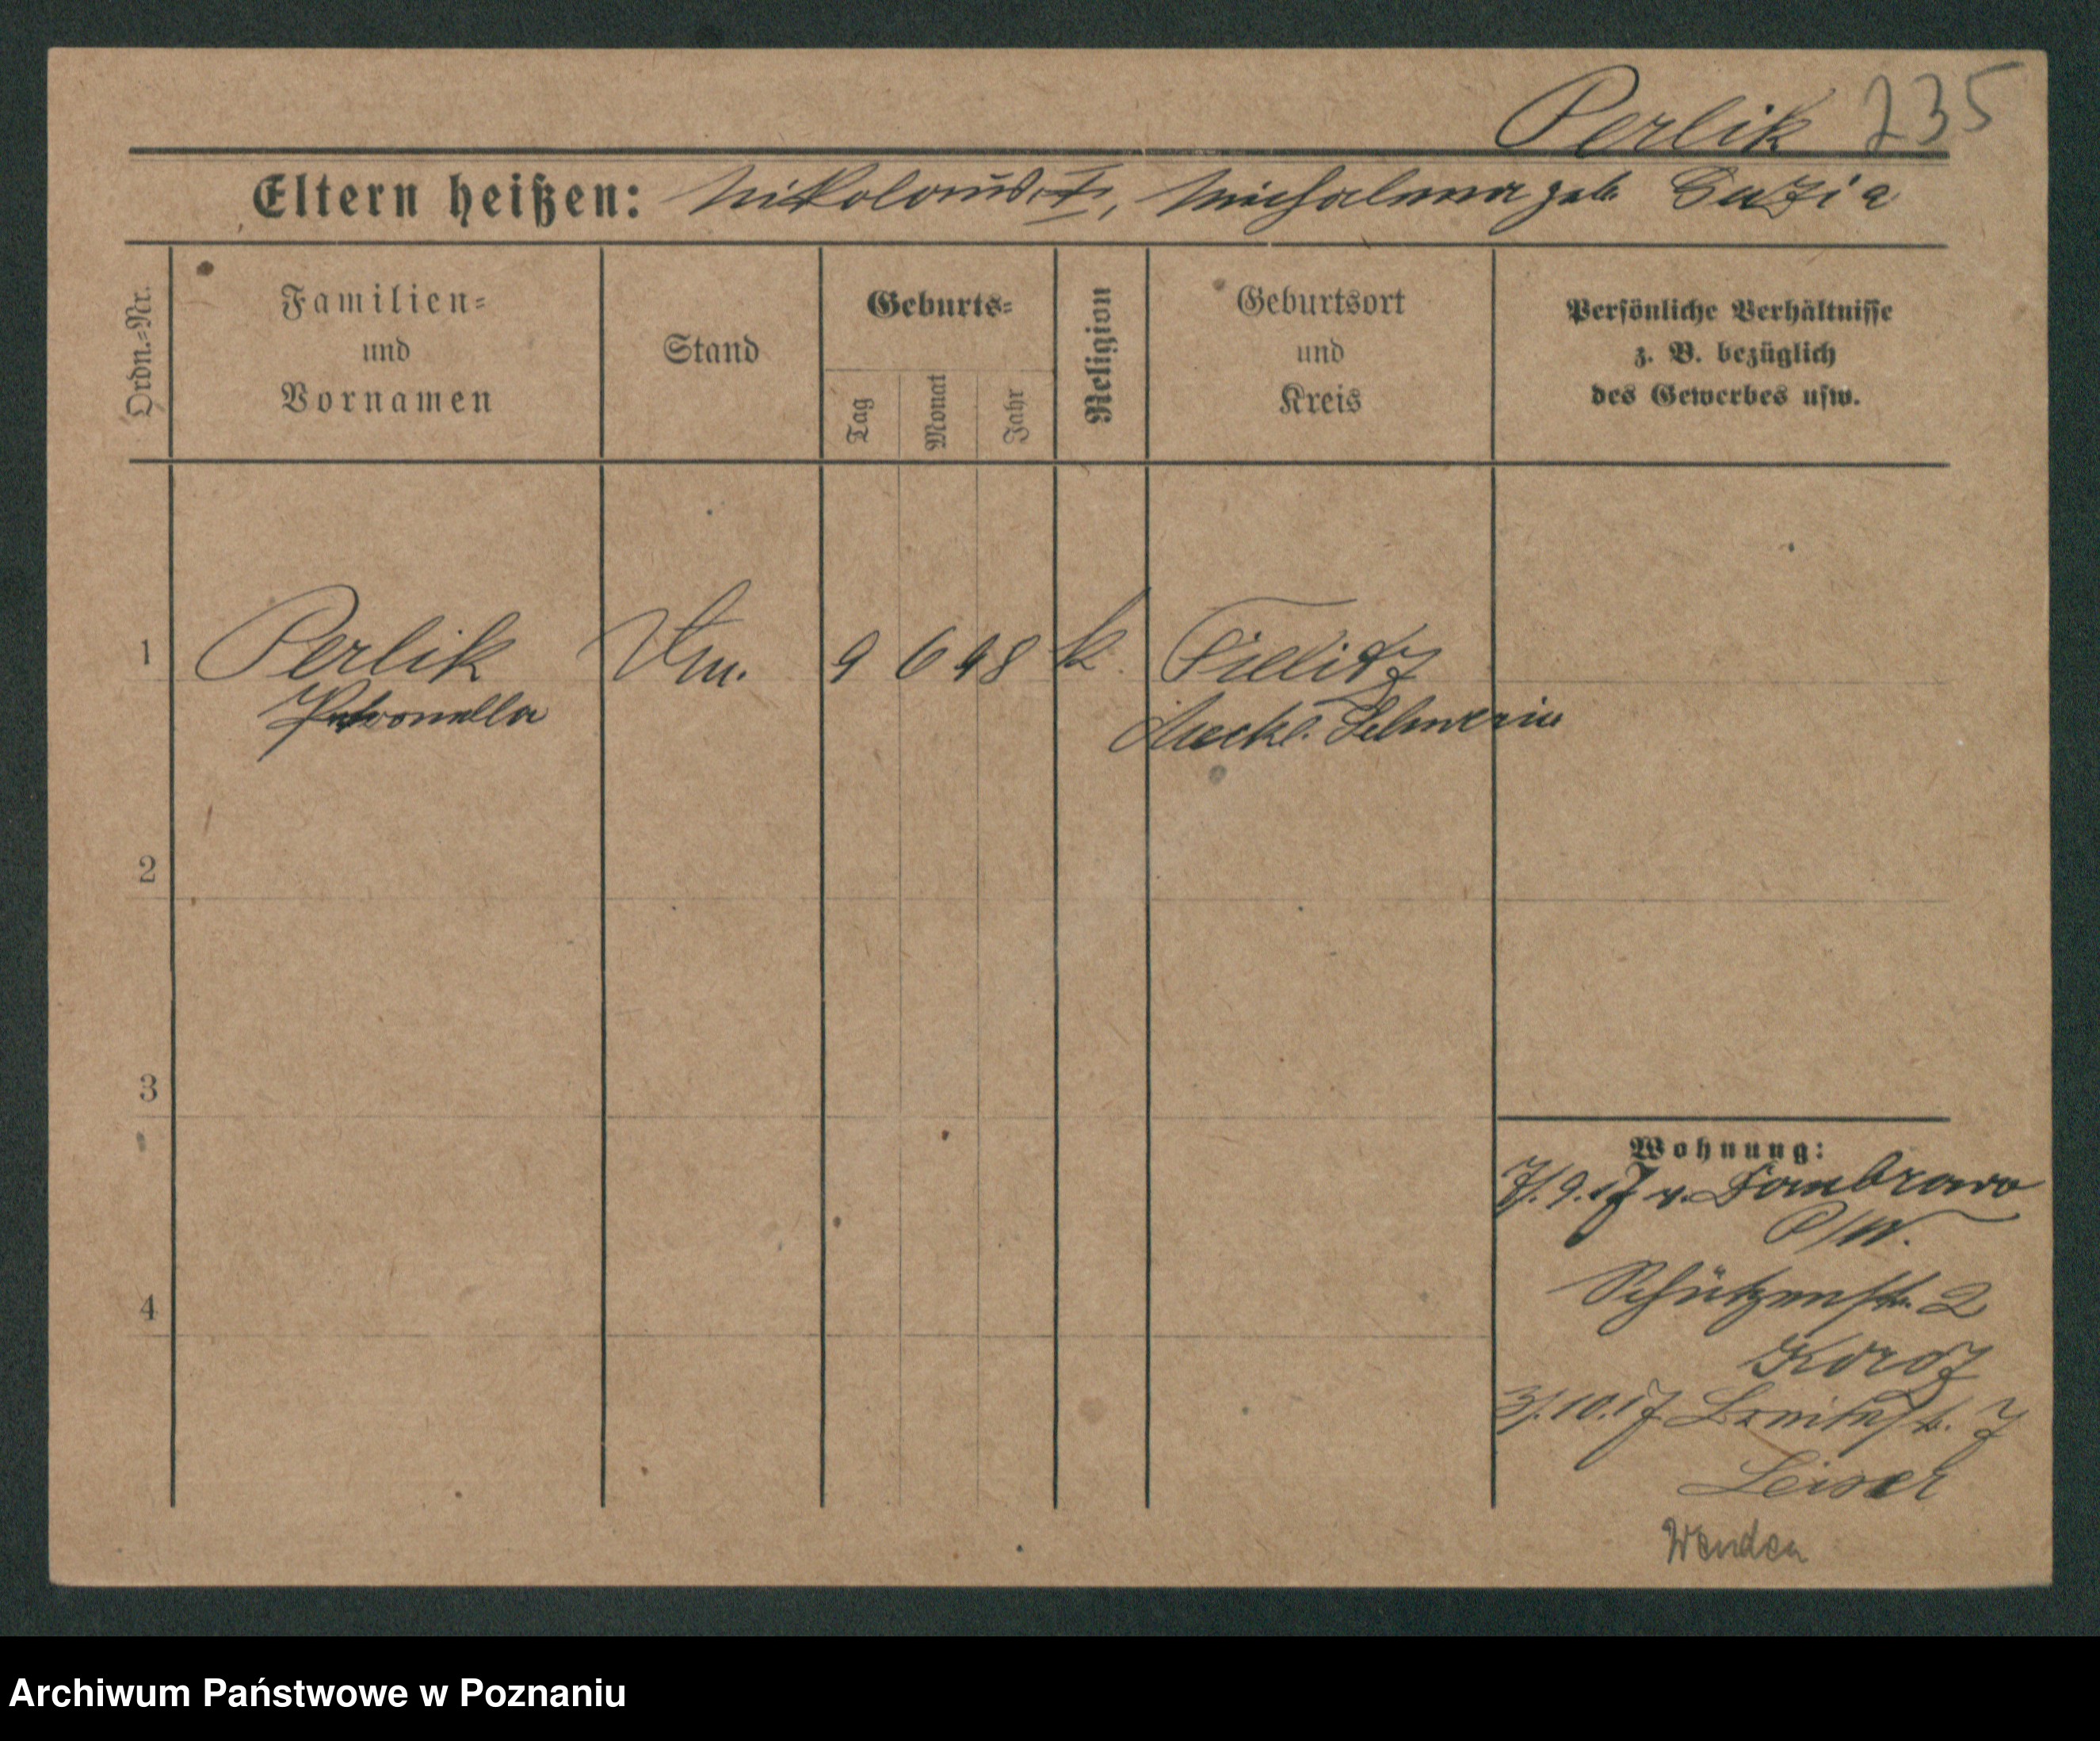 Perlik 235
Eltern heißen: Nikolaus †, Michalina geb. Duzia
Ordn.-Nr.
Familien-
und
Vornamen
Stand
Geburts-
Tag
Monat
Jahr
Religion
Geburtsort
und
Kreis
Persönliche Verhältnisse
z. B. bezüglich
des Gewerbes usw.
1 Perlik 9 6 98 k. Tielitz
Petronella Meckl. Schwerin
2
3
4
Wohnung:
7/.9.17 v. Dombrowo
P/W.
Schützenstr. 2
Koroz
3/.10.17 Breitestr. 7
Leiser
Wenden
Archiwum Państwowe w Poznaniu